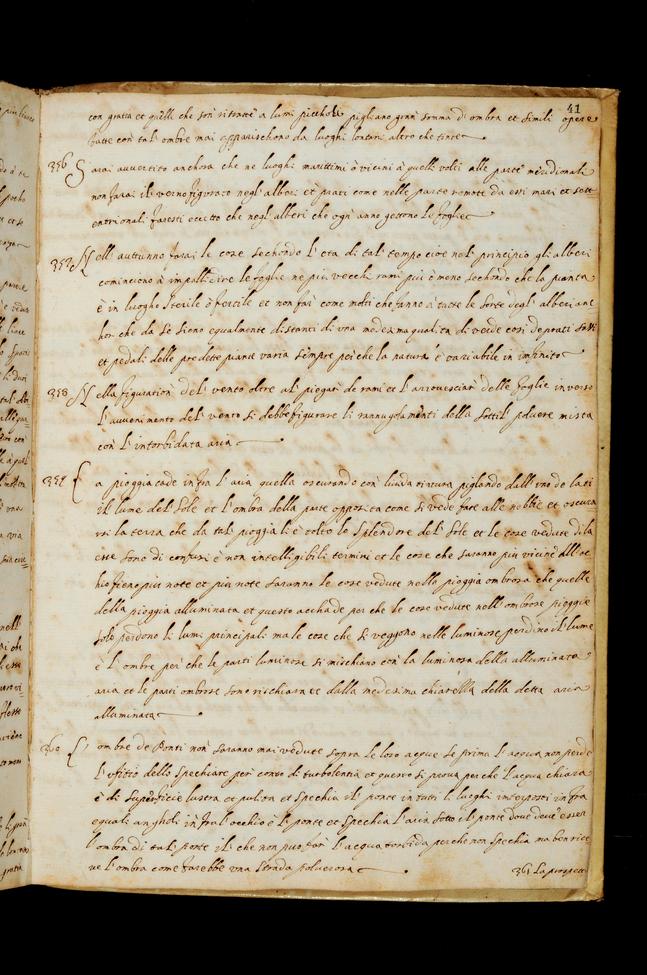 41
con gratia et quelli che son ritratti a lumi piccholi pigliano gran somma d'ombra et simili opere
fatte con tal' ombre mai appariscchono da luoghi lontani altro che tinte
356 Sarai avvertito anchora che ne luoghi marittimi ò vicini à quelli volti alle parte meridionali
non farai il verno figurato negl' alberi et prati come nelle parte remote da essi mari et sett=
entrionali faresti eccetto che negl'alberi che ogni anno gettono le foglie
357 Nell' autunno farai le cose sechondo l'età di tal' tempo cioe nel' principio gli alberi
cominciono à impallidire le foglie ne piu vecchi rami piu è meno sechondo che la pianta
è in luogho sterile ò fertile et non far come molti che fanno à tutte le sorte degl' alberi anc
hor che da sè sieno equalmente distanti di una medesma qualità di verde cosi de prati sassi
et pedali delle predette piante varia sempre perche la natura è variabile in infinito
358 Nella figuration' del' vento oltre al' piegar' de rami et l' arrovesciar' delle foglie inverso
l'avvenimento del' vento si debbe figurare li rannugolamenti della sottil' polvere mista
con l'intorbidata aria
359 La pioggia cade infra l'aria quella oscurando con' lucida tintura pigliando dall' uno de lati
il lume del' sole et l'ombra della parte opposita come si vede fare alle nebbie et oscura
rsi la terra che da tal' pioggia li è tolto lo splendore del' sole et le cose vedute di la
esse sono di confusi è non intelligibili termini et le cose che saranno piu vicine all'oc
hio fieno piu note et piu note saranno le cose vedute nella pioggia ombrosa che quelle
della pioggia alluminata et questo acchade perche le cose vedute nell' ombrose pioggie
solo perdono li lumi principali ma le cose che si veggono nelle luminose perdino il lume
è l'ombre perche le parti luminose si mischiano con la luminosa della alluminata
aria et le parti ombrose sono rischiarate dalla medesima chiarezza della detta aria
alluminata
360 L'ombre de Ponti non' saranno mai vedute sopra le loro acque se prima l'acqua non perde
l'ofitio dello spechiare per' conto di turbolentia et questo si prova perche l'acqua chiara
è di superficie lustra et pulita et spechia il ponte in tutti li luoghi interposti infra
equali angholi infra l'occhio è 'l ponte et spechia l'aria sotto il ponte dove deve esser
l'ombra di tal' ponte il che non puo far' l'acqua torbida perche non spechia ma ben rice
ve l'ombra come farebbe una strada polverosa
361 La prospett